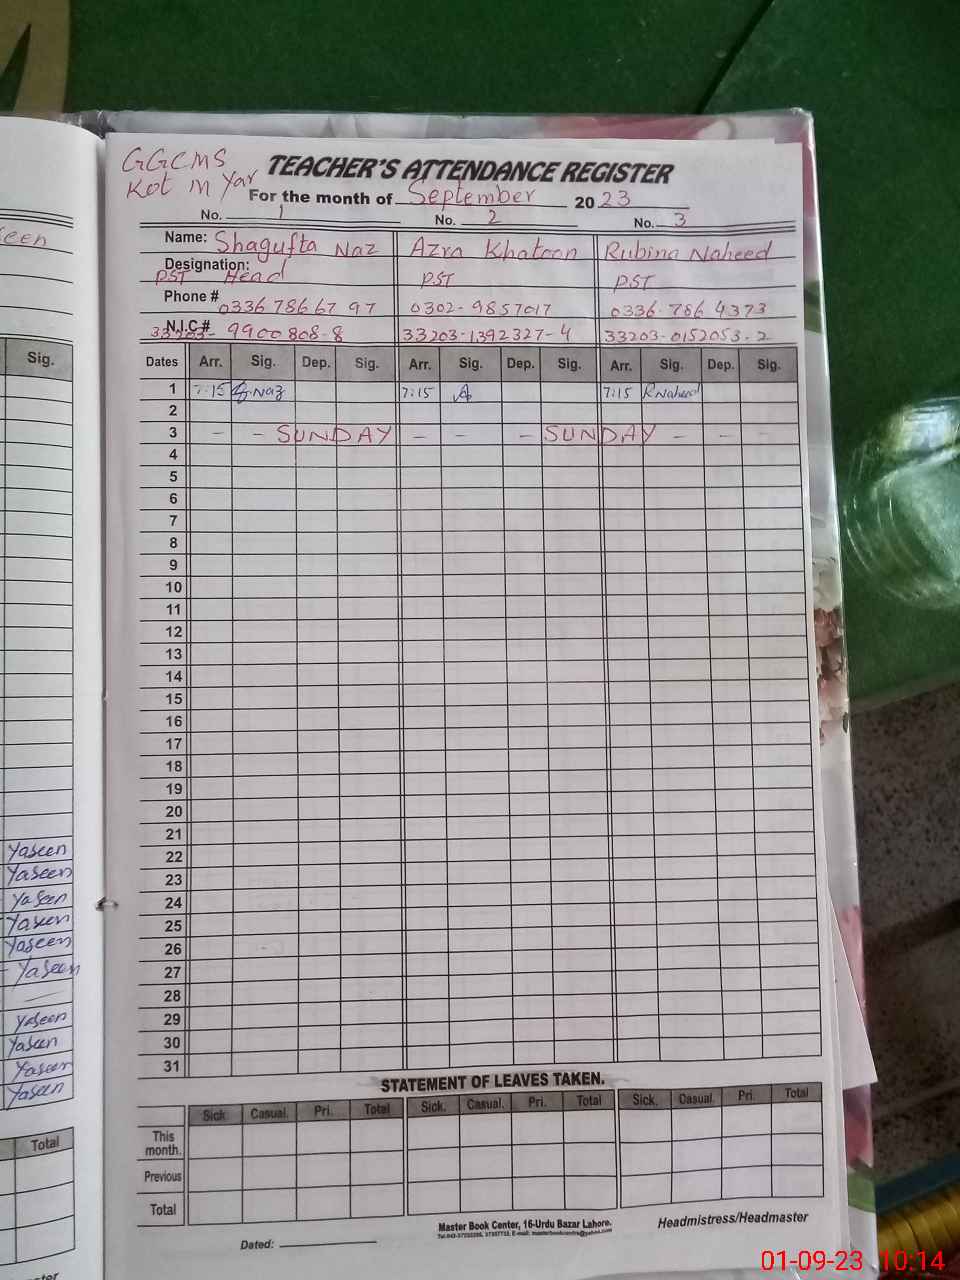 GGCMS
Kot M Yar
TEACHER'S ATTENDANCE REGISTER
For the month of September 2023
No. 1 No. 2 No. 3
Name: Shagufta Naz Azra Khatoon Rubina Naheed
Designation: PST Head PST PST
Phone # 0336 786 67 97 0302-9857017 0336-786 4373
N.I.C # 33203-9900808-8 33203-1392327-4 33203-0152053-2
Dates Arr. Sig. Dep. Sig. Arr. Sig. Dep. Sig. Arr. Sig. Dep. Sig.
1 7:15 Naz 7:15 A 7:15 R Naheed
2
3 - - SUNDAY - - - SUNDAY - -
4
5
6
7
8
9
10
11
12
13
14
15
16
17
18
19
20
21
22
23
24
25
26
27
28
29
30
31
STATEMENT OF LEAVES TAKEN.
Sick. Casual. Pri. Total Sick. Casual. Pri. Total Sick. Casual. Pri. Total
This month.
Previous
Total
Master Book Center, 16-Urdu Bazar Lahore.
Headmistress/Headmaster
Dated:
een
Sig.
Yaseen
Yaseen
Yaseen
Yaseen
Yaseen
Yaseen
Yaseen
Yaseen
Yaseen
Yaseen
Total
ster
01-09-23 10:14